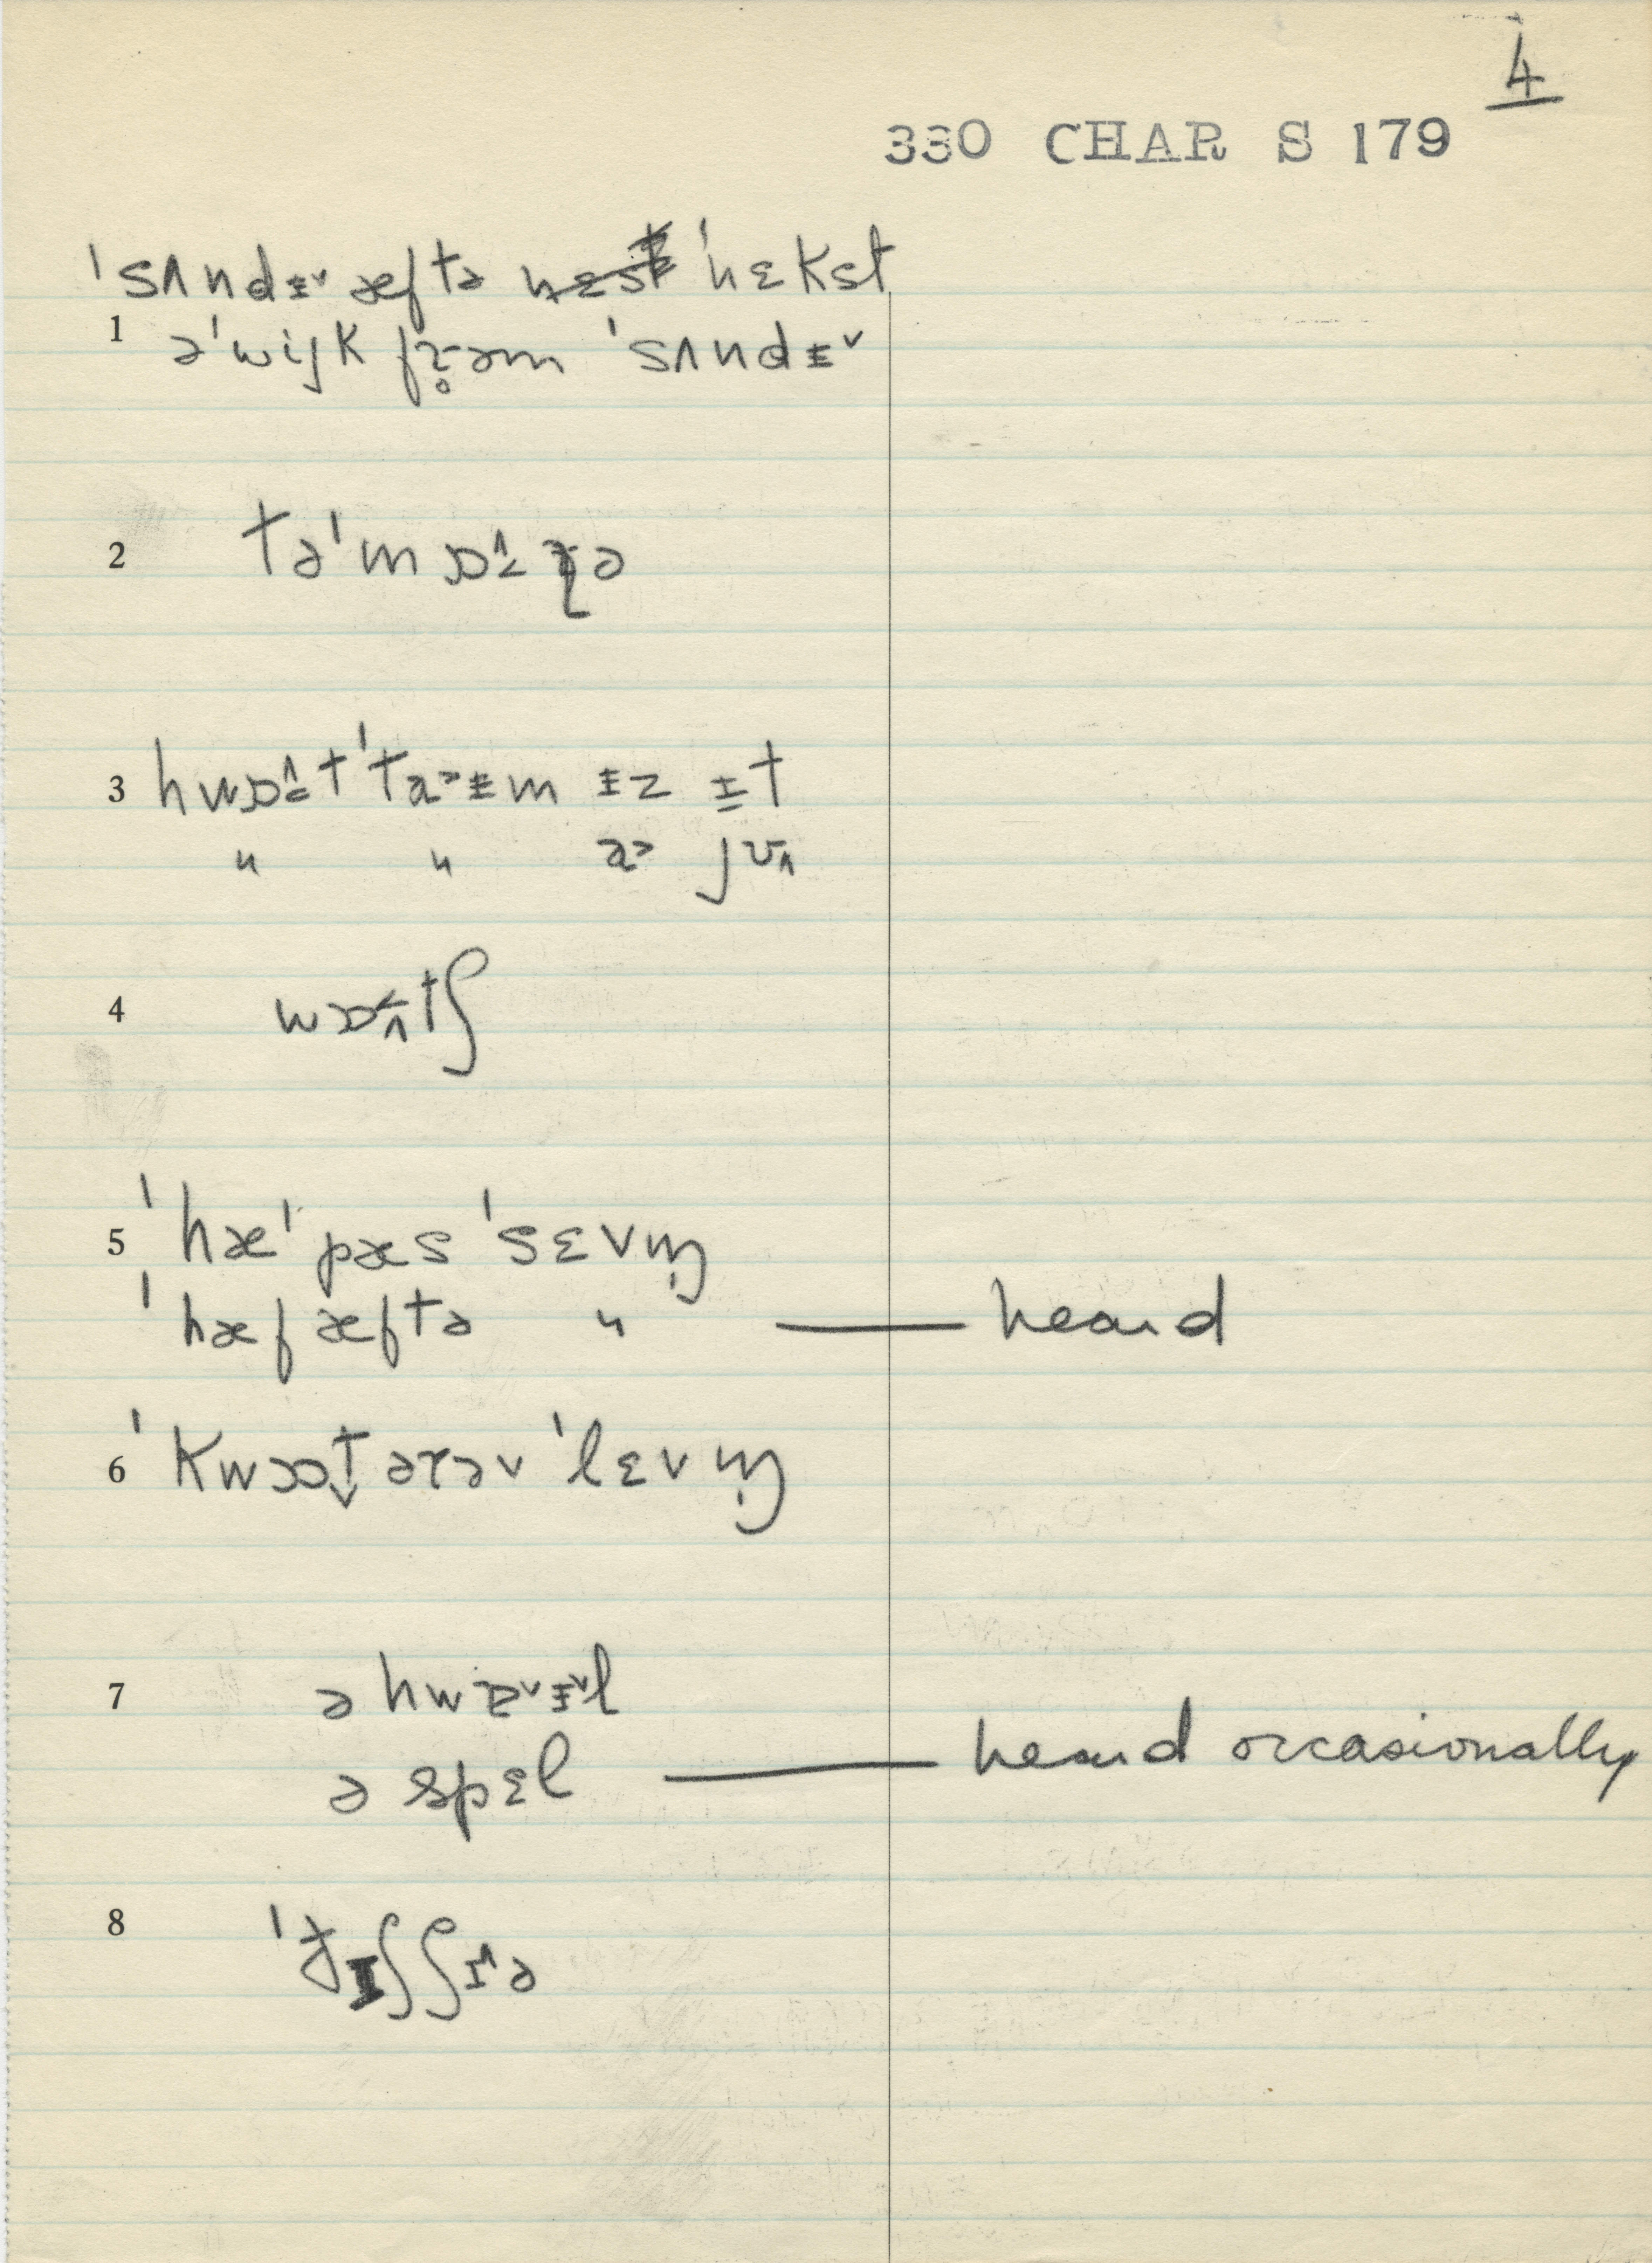 4
330 CHAR S 179
ˈsʌndɪ˅ æftə nɛst ˈnɛkst
1 əˈwijk fɹ̥əm ˈsʌndɪ˅
2 təˈmɒɹə
3 hwɒt ˈtaɪm ɪz ɪt
" " a˃ jʊ
4 wɒtʃ
5 ˈhæˈpæs ˈsɛvm̩
ˈhæf æftə " — heard
6 ˈkwɒtərəv ˈlɛvm̩
7 ə hwɐ˅ɪ˅l
ə spɛl — heard occasionally
8 ˈðɪʃ ʃɪə